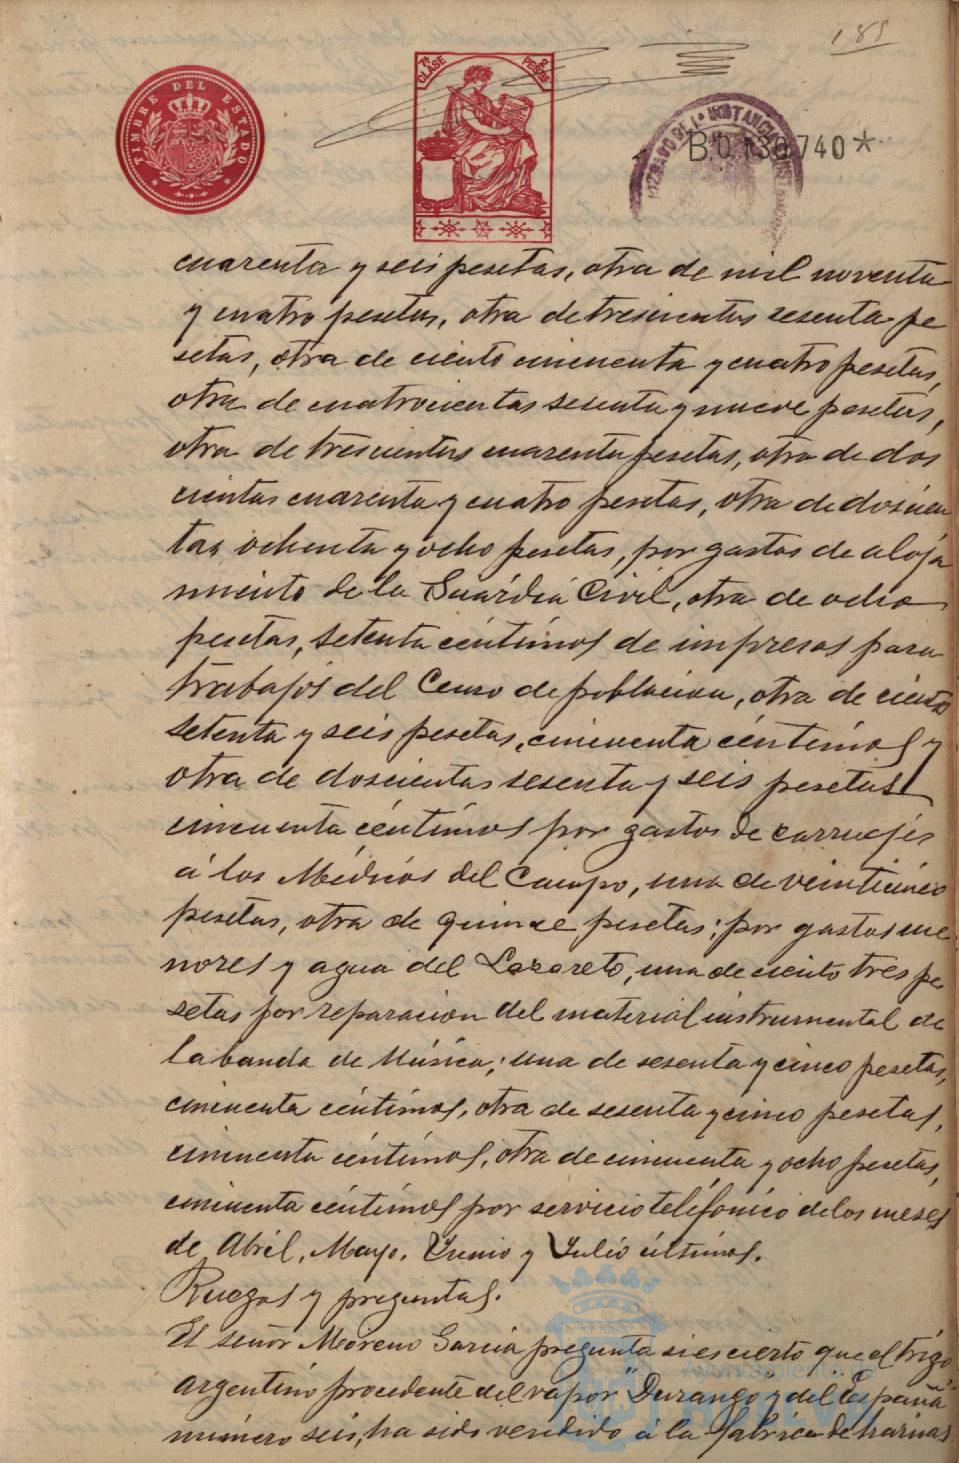 185
TIMBRE DEL ESTADO
7ª CLASE
2 PESETAS
JUZGADO DE 1ª INSTANCIA
B.0.130.740*
cuarenta y seis pesetas, otra de mil noventa
y cuatro pesetas, otra de trescientas sesenta pe
setas, otra de ciento cincuenta y cuatro pesetas,
otra de cuatrocientas sesenta y nueve pesetas,
otra de trescientas cuarenta pesetas, otra de dos
cientas cuarenta y cuatro pesetas, otra de doscien
tas ochenta y ocho pesetas, por gastos de aloja
miento de la Guardia Civil, otra de ocho
pesetas, setenta céntimos de impresos para
trabajos del Censo de poblacion, otra de ciento
setenta y seis pesetas, cincuenta céntimos y
otra de doscientas sesenta y seis pesetas
cincuenta céntimos por gastos de carruajes
á los Médicos del Campo, una de veinticinco
pesetas, otra de quince pesetas; por gastos me
nores y agua del Lazareto, una de ciento tres pe
setas por reparacion del material instrumental de
la banda de Música; una de sesenta y cinco pesetas,
cincuenta céntimos, otra de sesenta y cinco pesetas,
cincuenta céntimos, otra de cincuenta y ocho pesetas,
cincuenta céntimos por servicio telefónico de los meses
de Abril, Mayo, Junio y Julio últimos.
Ruegos y preguntas.
El señor Moreno Garcia pregunta si es cierto que el trigo
argentino procedente del vapor "Durango" y del España
número seis, ha sido vendido á la fabrica de harinas
Ayuntamiento de
HUELVA